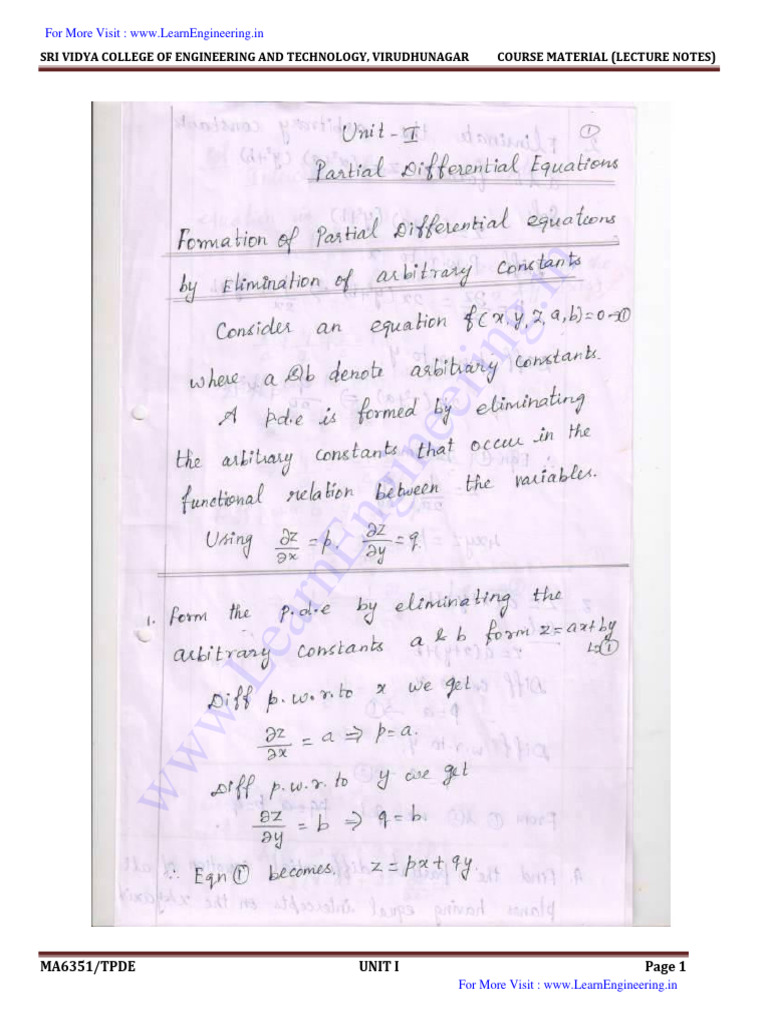 For More Visit : www.LearnEngineering.in
SRI VIDYA COLLEGE OF ENGINEERING AND TECHNOLOGY, VIRUDHUNAGAR COURSE MATERIAL (LECTURE NOTES)
Unit - I ①
Partial Differential Equations
Formation of Partial Differential equations
by Elimination of arbitrary constants
Consider an equation f(x, y, z, a, b)=0→①
where a & b denote arbitrary constants.
A p.d.e is formed by eliminating
the arbitrary constants that occur in the
functional relation between the variables.
Using ∂z/∂x = p. ∂z/∂y = q.
1. Form the p.d.e by eliminating the
arbitrary constants a & b form z = ax+by
↳①
Diff p.w.r.to x we get
∂z/∂x = a ⇒ p=a.
Diff p.w.r.to y we get
∂z/∂y = b ⇒ q=b.
∴ Eqn ① becomes. z = px + qy.
www.LearnEngineering.in
MA6351/TPDE UNIT I Page 1
For More Visit : www.LearnEngineering.in